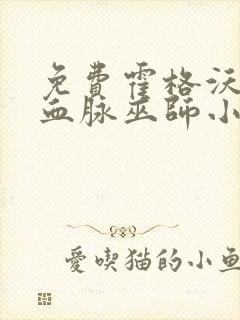 免費霍格沃
血脈巫師小
愛喫猫的小魚